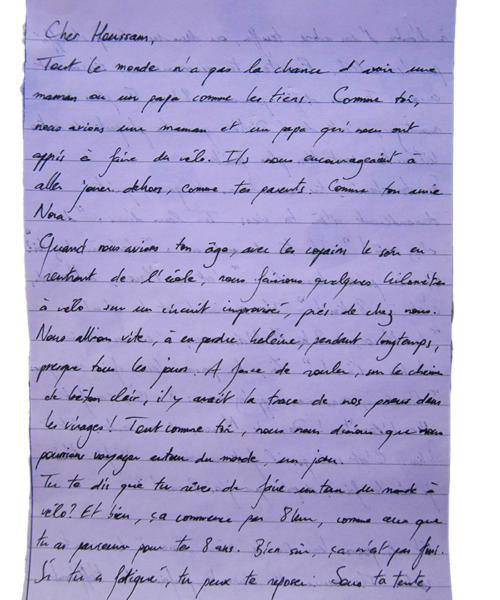 Cher Houssam,
Tout le monde n'a pas la chance d'avoir une
maman ou un papa comme les tiens. Comme toi,
nous avions une maman et un papa qui nous ont
appris à faire du vélo. Ils nous encourageaient à
aller jouer dehors, comme tes parents. Comme ton amie
Nora.
Quand nous avions ton âge, avec les copains le soir en
rentrant de l'école, nous faisions quelques kilomètres
à vélo sur un circuit improvisé, près de chez nous.
Nous allions vite, à en perdre haleine, pendant longtemps,
presque tous les jours. A force de rouler, sur le chemin
de béton clair, il y avait la trace de nos pneus dans
les virages ! Tout comme toi, nous nous disions que nous
pourrions voyager autour du monde, un jour.
Tu te dis que tu rêves de faire un tour du monde à
vélo ? Et bien, ça commence par 8 km, comme ceux que
tu as parcouru pour tes 8 ans. Bien sûr, ça n'est pas fini.
Si tu es fatigué, tu peux te reposer. Sous ta tente,